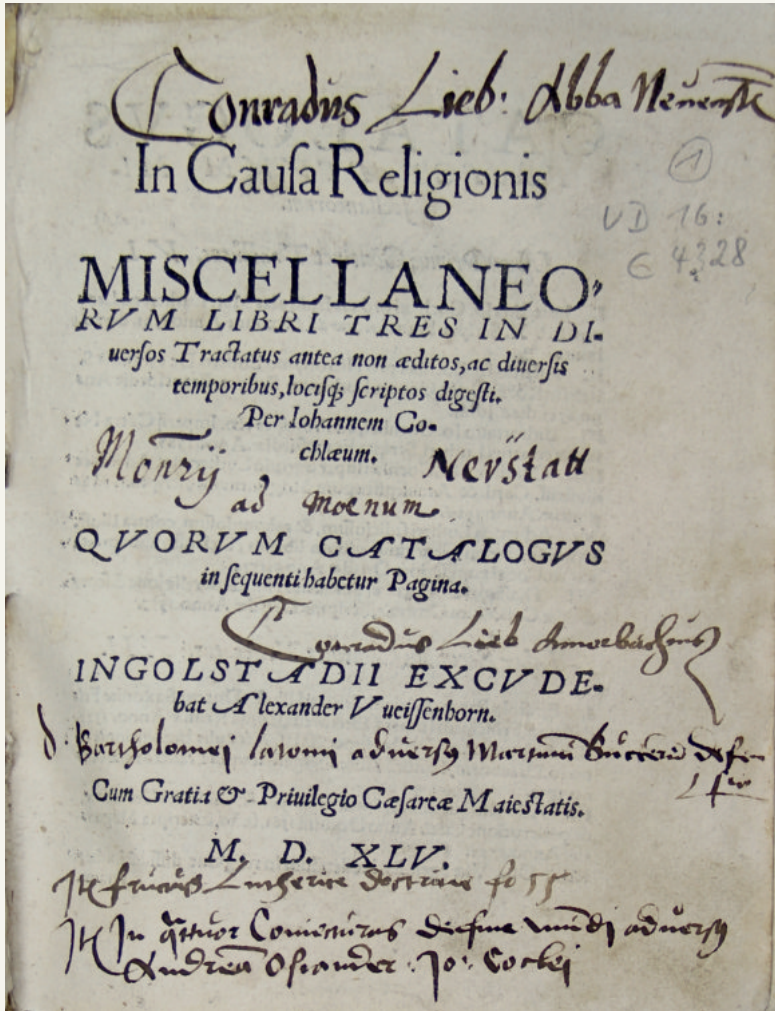 Conradus Lieb: Abba Neuenst
In Causa Religionis
①
VD 16:
C 4328
MISCELLANEO⸗
RVM LIBRI TRES IN DI⸗
uersos Tractatus antea non æditos, ac diuersis
temporibus, locisq; scriptos digesti.
Per Iohannem Co⸗
chlæum.
Monrij Neustatt
ad Moenum
QVORVM CATALOGVS
in sequenti habetur Pagina.
Conradus Lieb Amorbachius
INGOLSTADII EXCVDE⸗
bat Alexander Vueissenhorn.
D. Bartholomej latomi adversus Martinū Buccerū defen
sio
Cum Gratia & Priuilegio Cæsareæ Maiestatis.
M. D. XLV.
Itē fructus Lutherice doctrine fo 55
Itē In quatuor Coniecturas de fine mundi adversus
Andreā Osiander: Jo: Coclej